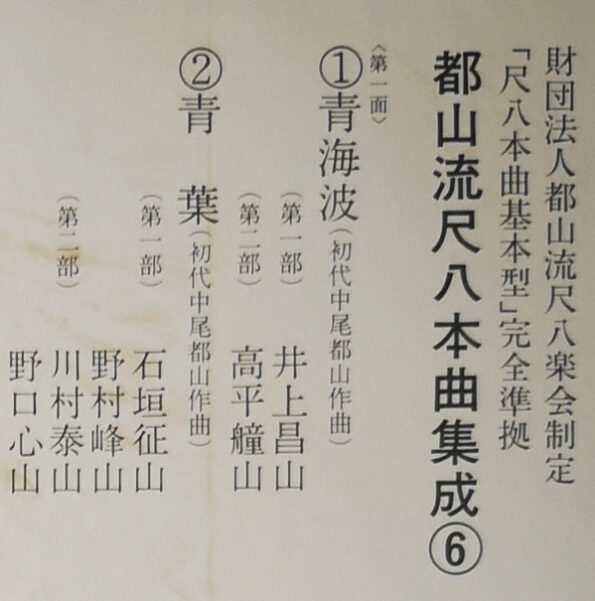 財団法人都山流尺八楽会制定
「尺八本曲基本型」完全準拠
都山流尺八本曲集成⑥
〈第一面〉
①青海波（初代中尾都山作曲）
（第一部）井上昌山
（第二部）高平艟山
②青葉（初代中尾都山作曲）
（第一部）石垣征山
野村峰山
（第二部）川村泰山
野口心山